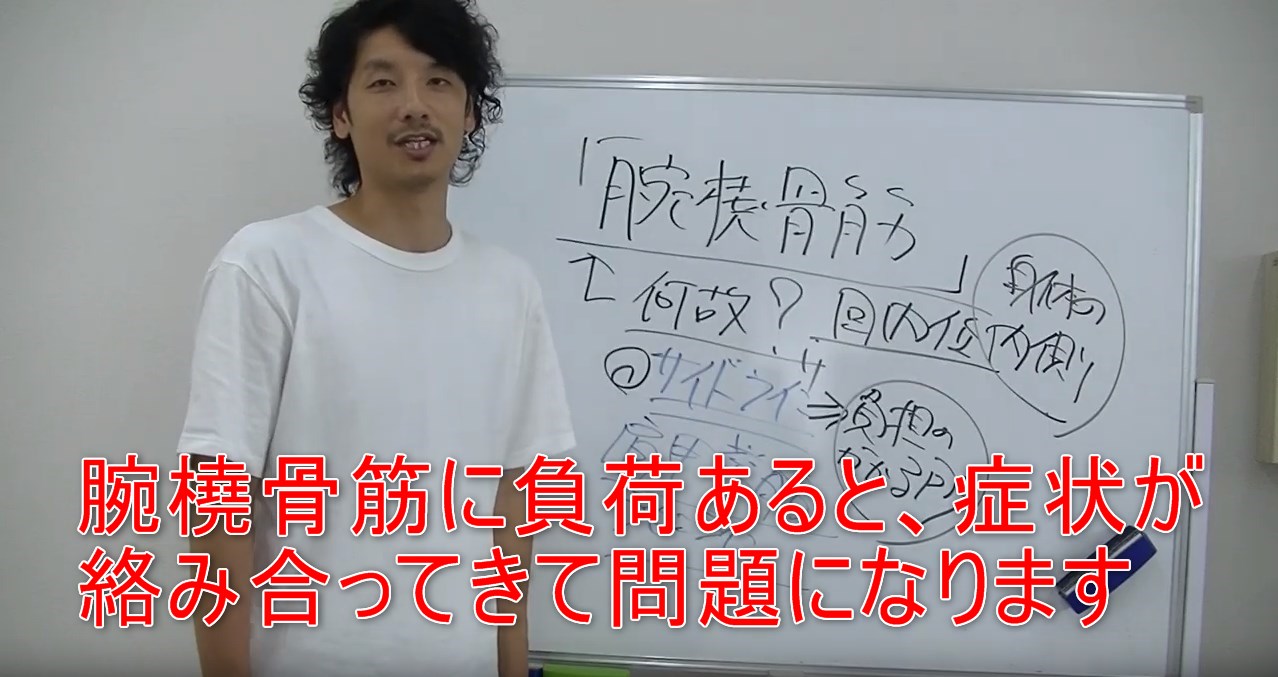 「腕橈骨筋」
身体の
内側
↑ 何故? 回内位
① サイドライン
⇒ 負担の
かかるP
腕橈骨筋に負荷あると、症状が
絡み合ってきて問題になります